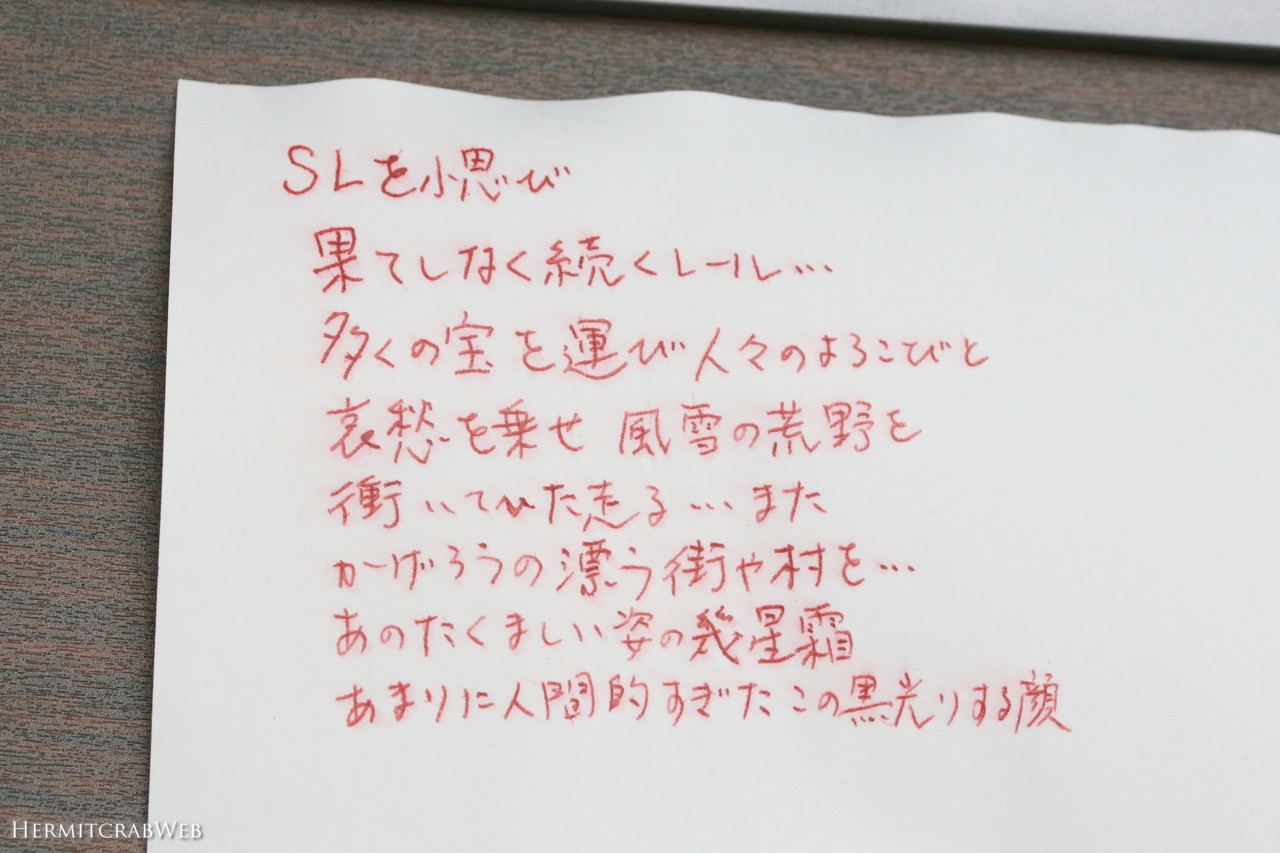 SLを偲び
果てしなく続くレール…
多くの宝を運び人々のよろこびと
哀愁を乗せ 風雪の荒野を
衝いてひた走る…また
かげろうの漂う街や村を…
あのたくましい姿の幾星霜
あまりに人間的すぎたこの黒光りする顔
HERMITCRABWEB